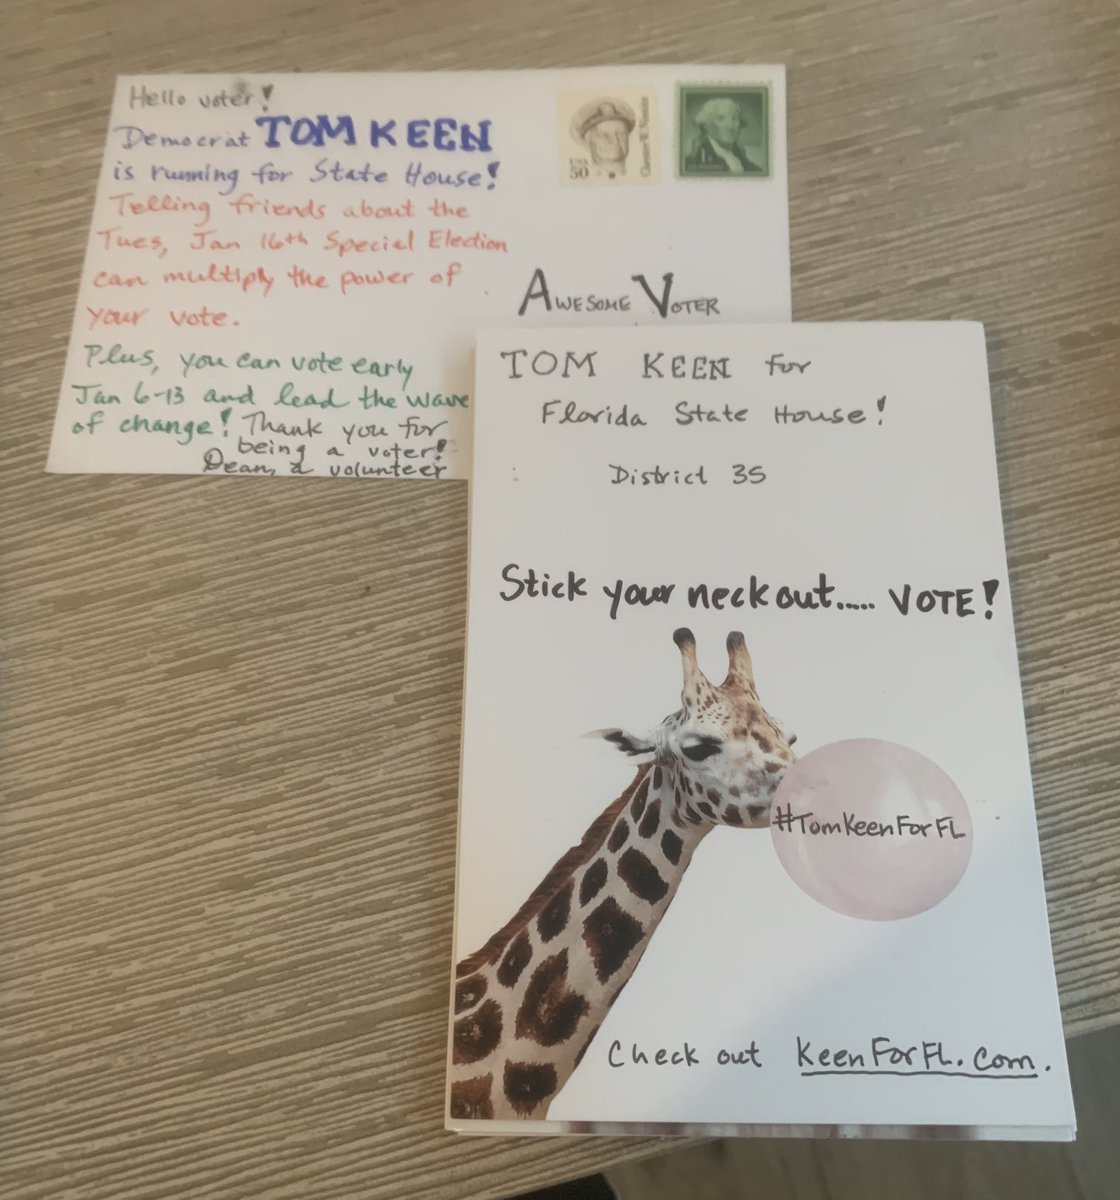 Hello voter!
Democrat TOM KEEN
is running for State House!
Telling friends about the
Tues, Jan 16th Special Election
can multiply the power of
your vote.
Plus, you can vote early
Jan 6-13 and lead the wave
of change! Thank you for
being a voter!
Dean, a volunteer
USA
50
1¢
AWESOME VOTER
TOM KEEN for
Florida State House!
District 35
Stick your neck out..... VOTE!
#TomKeenForFL
Check out KeenForFL.com.